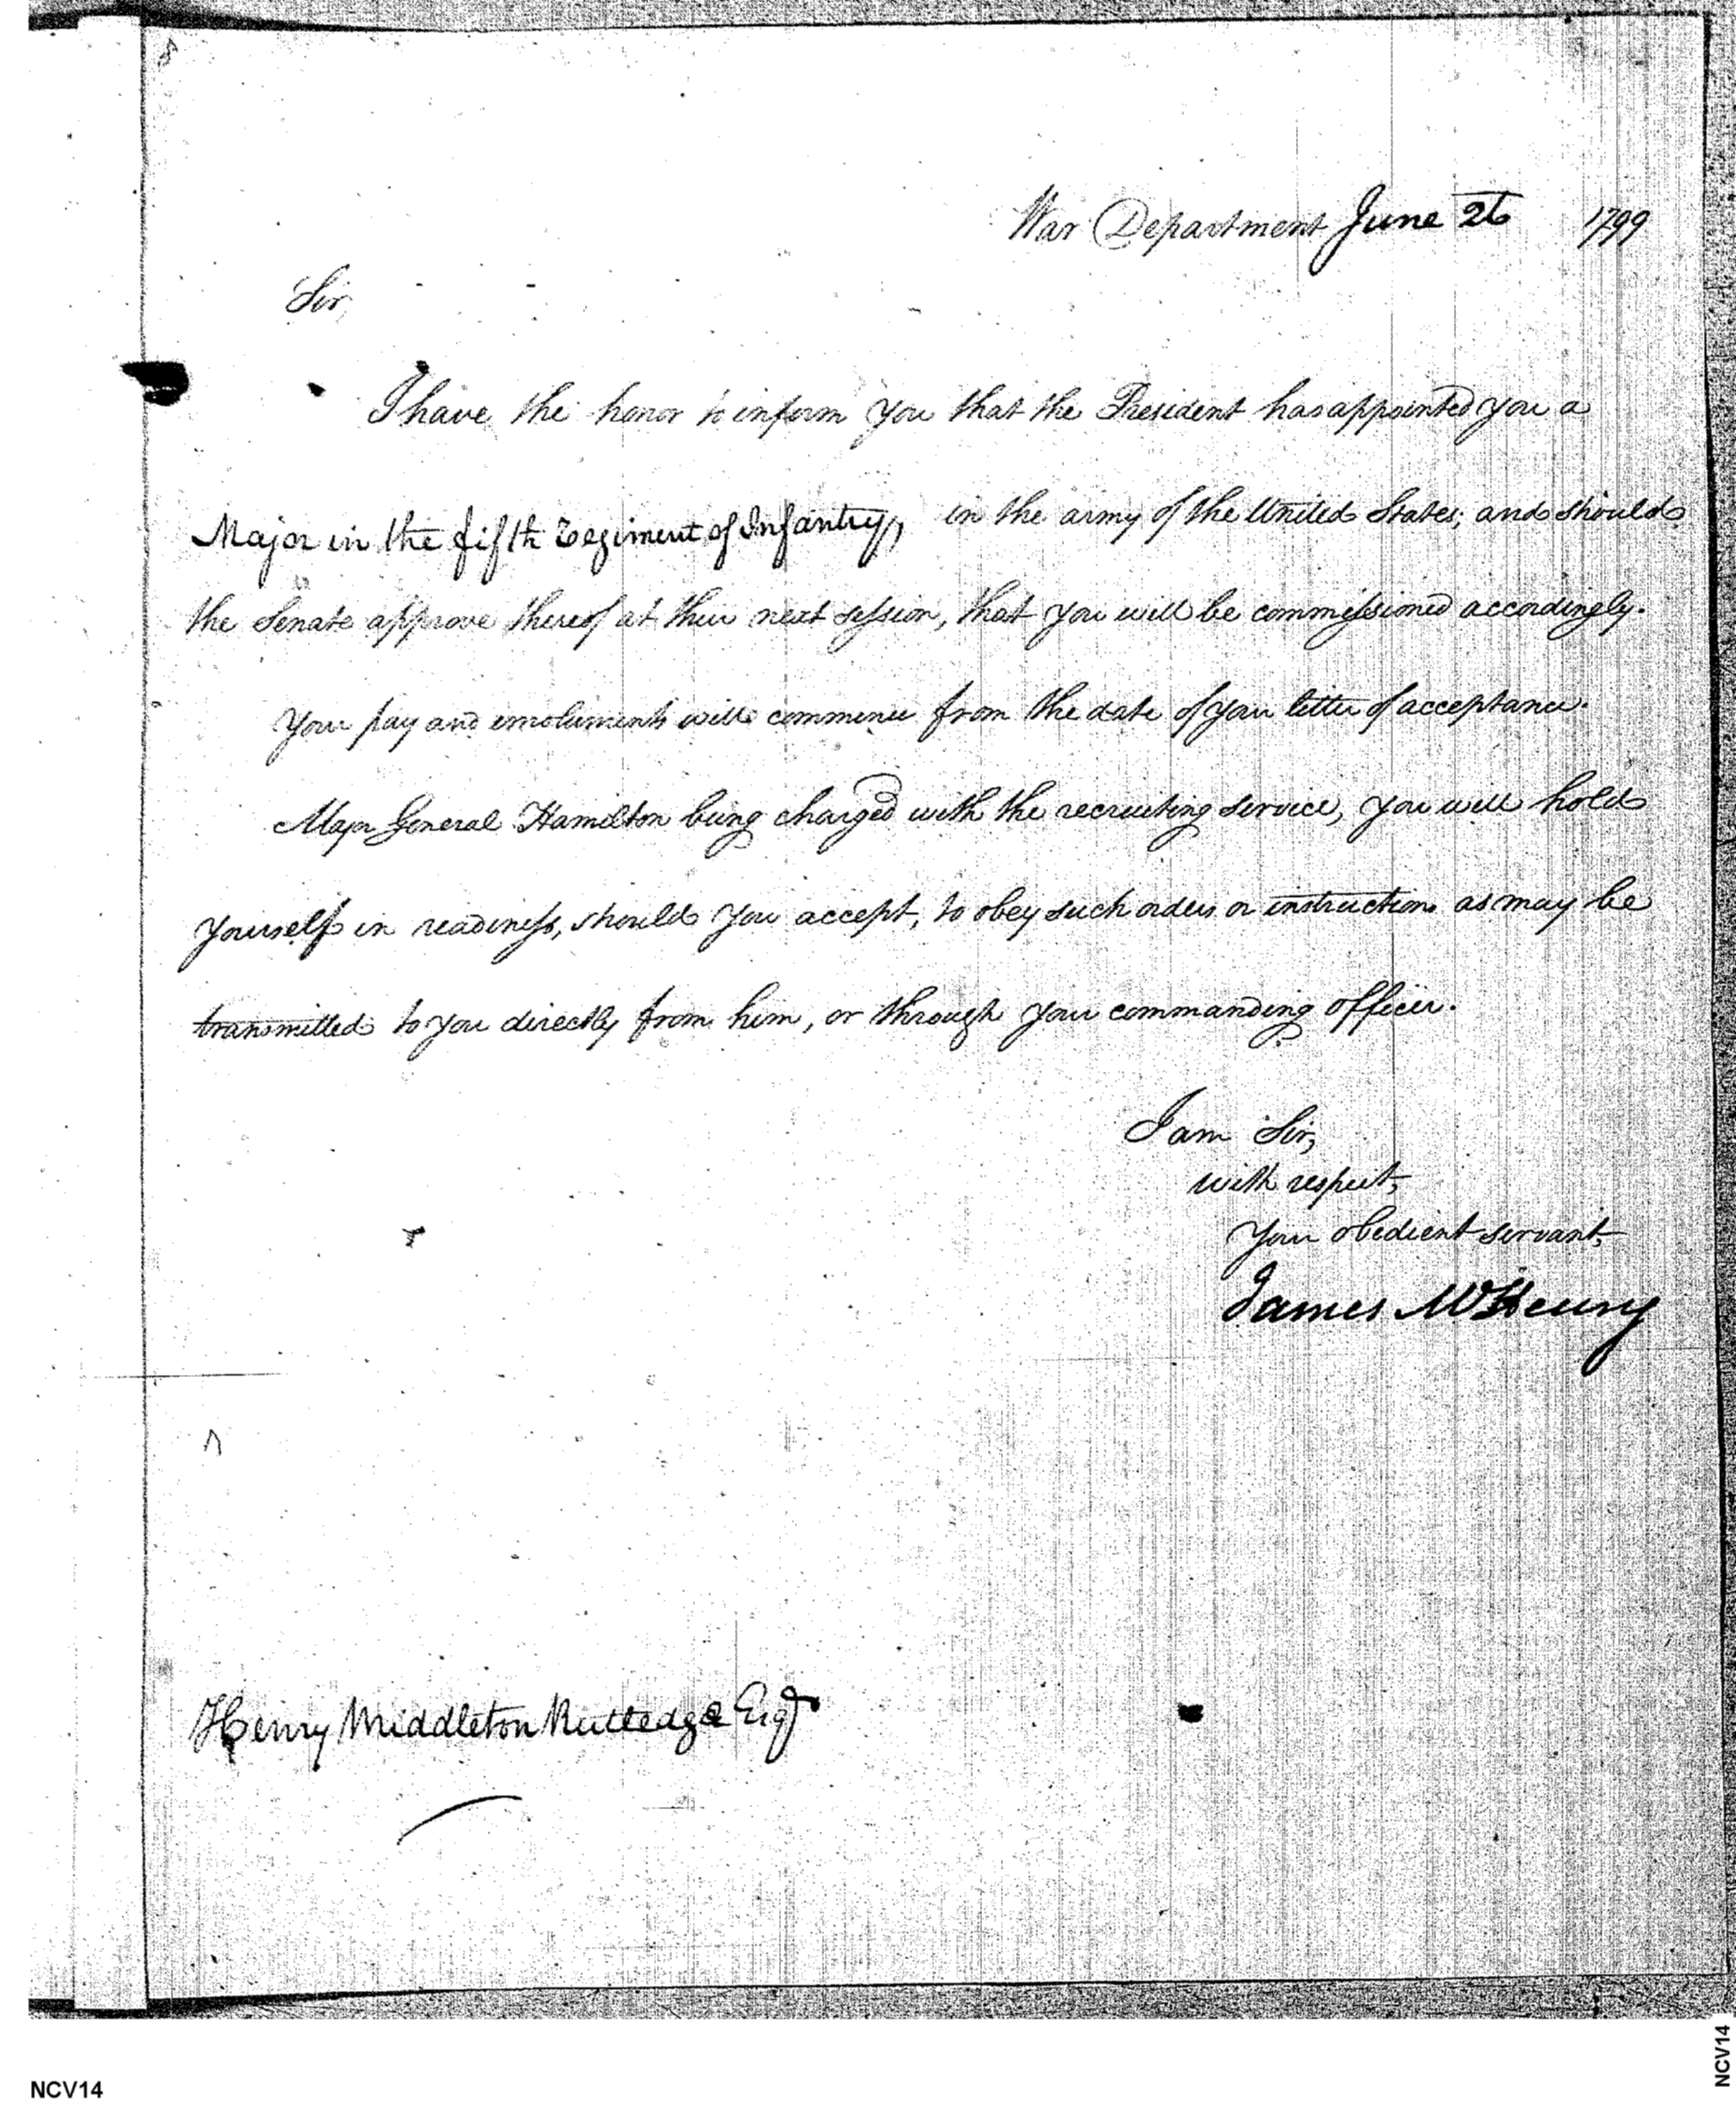 War Department June 26 1799
Sir,
I have the honor to inform you that the President has appointed you a
Major in the fifth Regiment of Infantry, in the army of the United States; and should
the Senate approve thereof at their next session, that you will be commissioned accordingly.
Your pay and emoluments will commence from the date of your letter of acceptance.
Major General Hamilton being charged with the recruiting service, you will hold
yourself in readiness, should you accept, to obey such orders or instructions as may be
transmitted to you directly from him, or through your commanding officer.
I am Sir,
with respect,
Your obedient servant,
James McHenry
Henry Middleton Rutledge Esqr
NCV14
NCV14